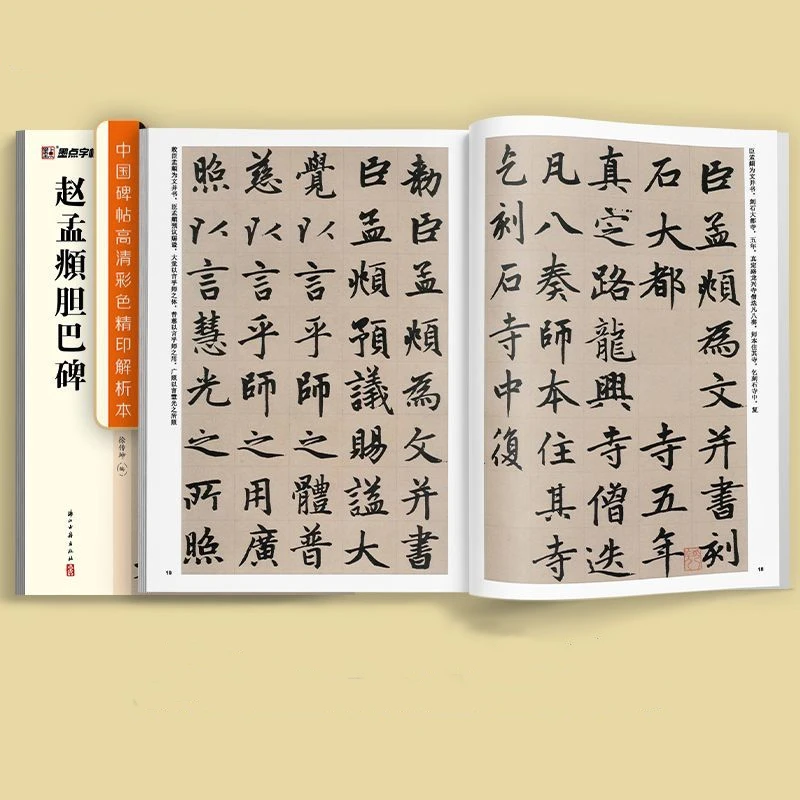 墨点字帖
赵孟頫胆巴碑
中国碑帖高清彩色精印解析本
徐传坤 编
浙江古籍出版社
臣孟頫为文并书，刻石大都寺，五年，真定路龙兴寺僧迭凡八奏，师本住其寺，乞刻石寺中，复
臣孟頫為文并書刻
石大都寺五年
真定路龍興寺僧迭
凡八奏師本住其寺
乞刻石寺中復
18
敕臣孟頫为文并书。臣孟頫预议赐谥，大觉以言乎师之体，普慈以言乎师之用，广照以言慧光之所照
勅臣孟頫為文并書
臣孟頫預議賜謚大
覺以言乎師之體普
慈以言乎師之用廣
照以言慧光之所照
19